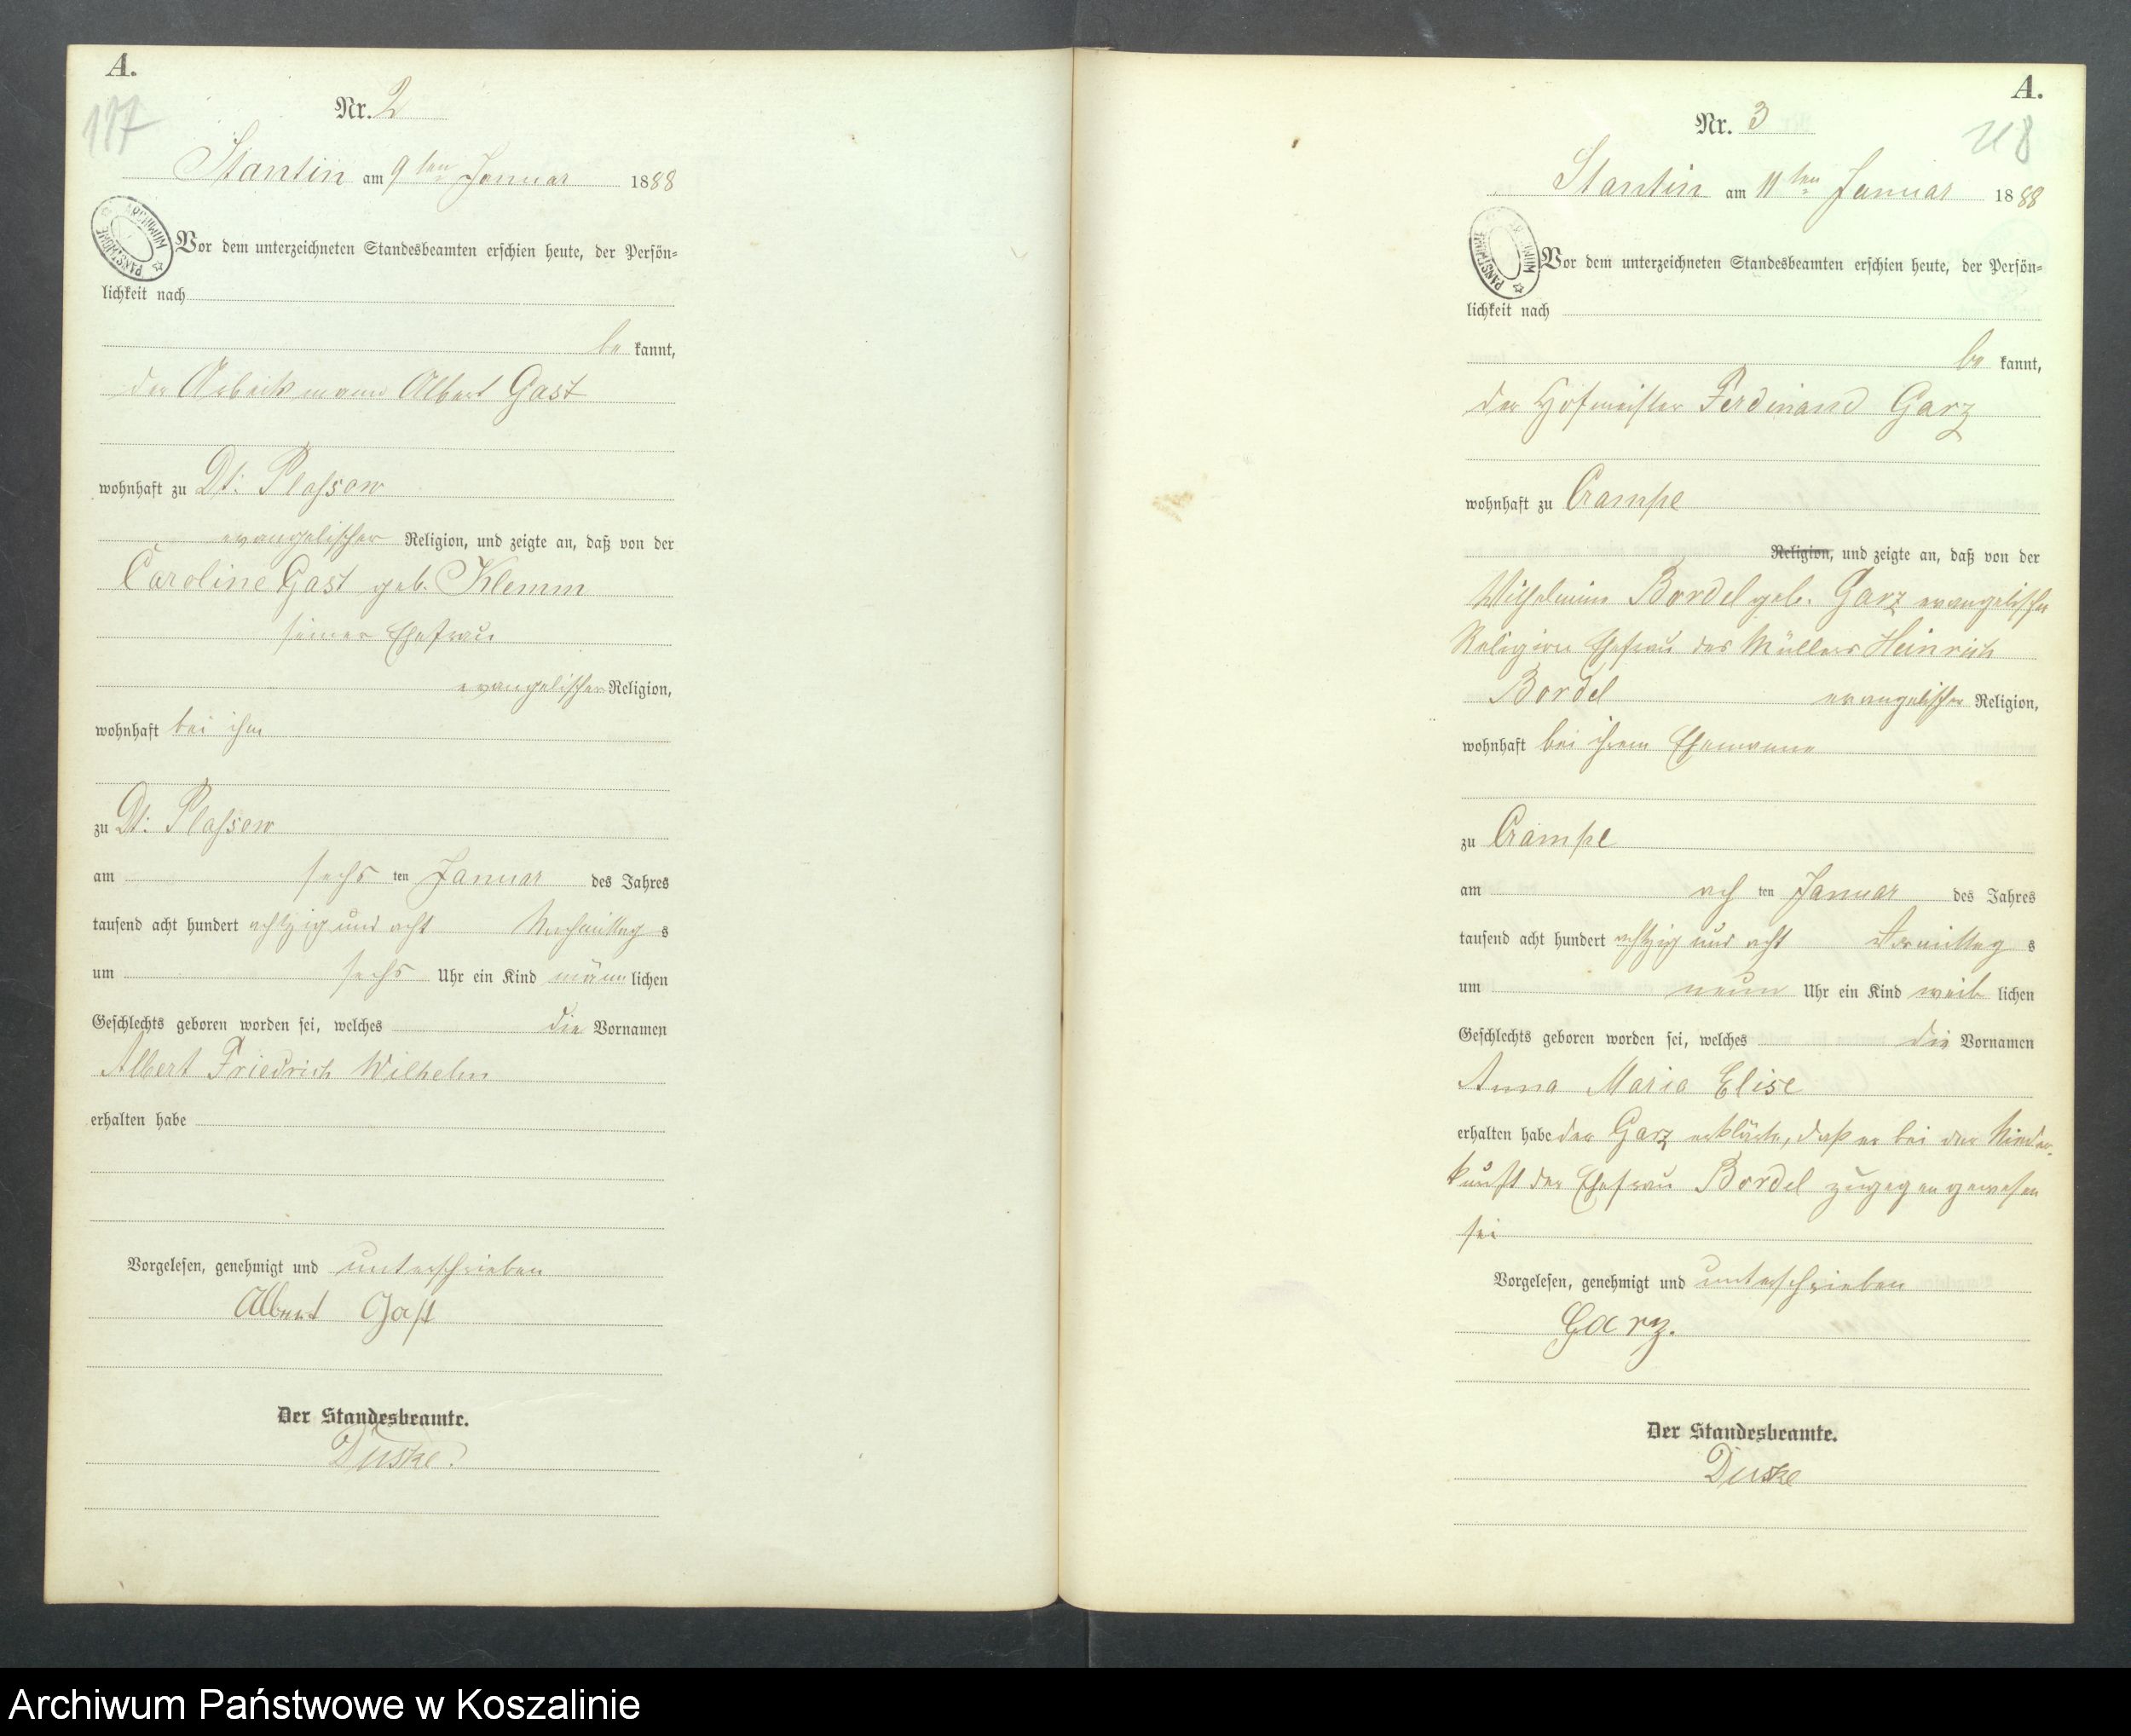 A.
117
Nr. 2
Stantin am 9ten Januar 1888
ARCHIWUM PAŃSTWOWE
Vor dem unterzeichneten Standesbeamten erschien heute, der Persön=
lichkeit nach
be kannt,
der Arbeitsmann Albert Gast
wohnhaft zu Dt: Plassow
evangelischer Religion, und zeigte an, daß von der
Caroline Gast geb. Klemm
seiner Ehefrau
evangelischer Religion,
wohnhaft bei ihm
zu Dt: Plassow
am sechs ten Januar des Jahres
tausend acht hundert achtzig und acht Nachmittag s
um sechs Uhr ein Kind männ lichen
Geschlechts geboren worden sei, welches die Vornamen
Albert Friedrich Wilhelm
erhalten habe
Vorgelesen, genehmigt und unterschrieben
Albert Gast
Der Standesbeamte.
Duske.
A.
118
Nr. 3
Stantin am 11ten Januar 1888
ARCHIWUM PAŃSTWOWE
Vor dem unterzeichneten Standesbeamten erschien heute, der Persön=
lichkeit nach
be kannt,
der Hofmeister Ferdinand Garz
wohnhaft zu Crampe
Religion, und zeigte an, daß von der
Wilhelmine Bordel geb. Garz evangelischer
Religion Ehefrau des Müllers Heinrich
Bordel evangelischer Religion,
wohnhaft bei ihrem Ehemanne
zu Crampe
am ach ten Januar des Jahres
tausend acht hundert achtzig und acht Vormittag s
um neun Uhr ein Kind weib lichen
Geschlechts geboren worden sei, welches die Vornamen
Anna Maria Elise
erhalten habe der Garz erklärte, daß er bei der Nieder-
kunft der Ehefrau Bordel zugegen gewesen
sei
Vorgelesen, genehmigt und unterschrieben
Garz.
Der Standesbeamte.
Duske
Archiwum Państwowe w Koszalinie